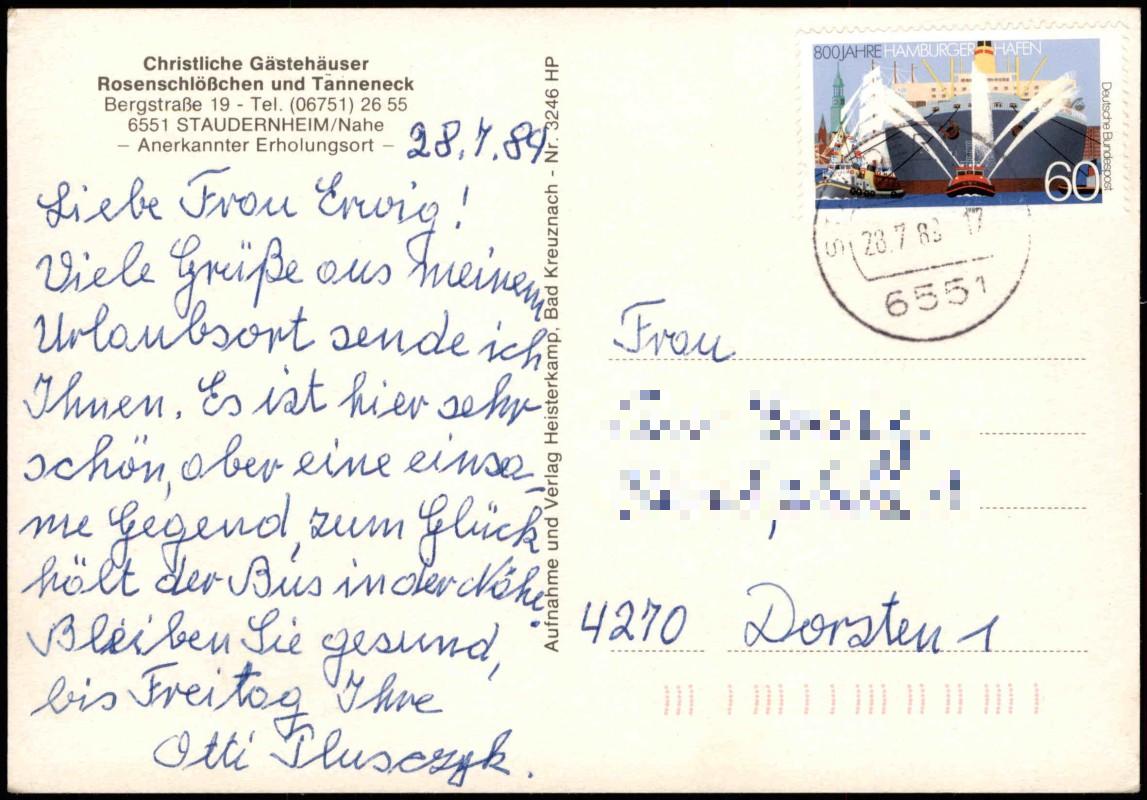 Christliche Gästehäuser
Rosenschlößchen und Tanneneck
Bergstraße 19 - Tel. (06751) 26 55
6551 STAUDERNHEIM/Nahe
– Anerkannter Erholungsort –
28.7.89
Liebe Frau Erwig!
Viele Grüße aus meinem
Urlaubsort sende ich
Ihnen. Es ist hier sehr
schön, aber eine einsa-
me Gegend, zum Glück
hält der Bus in der Nähe.
Bleiben Sie gesund,
bis Freitag Ihre
Otti Plusczyk.
Aufnahme und Verlag Heisterkamp, Bad Kreuznach - Nr. 3246 HP
800 JAHRE HAMBURGER HAFEN
Deutsche Bundespost
60
28.7.89 17
6551
Frau
4270 Dorsten 1